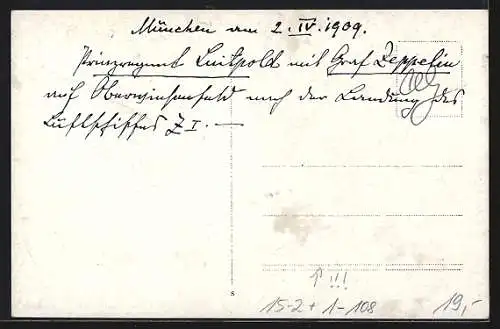 München am 2. IV. 1909.
Prinzregent Luitpold mit Graf Zeppelin
auf Oberwiesenfeld nach der Landung des
Luftschiffes Z I. —
↑ !!!
8
15-2 + 1-108
19,-